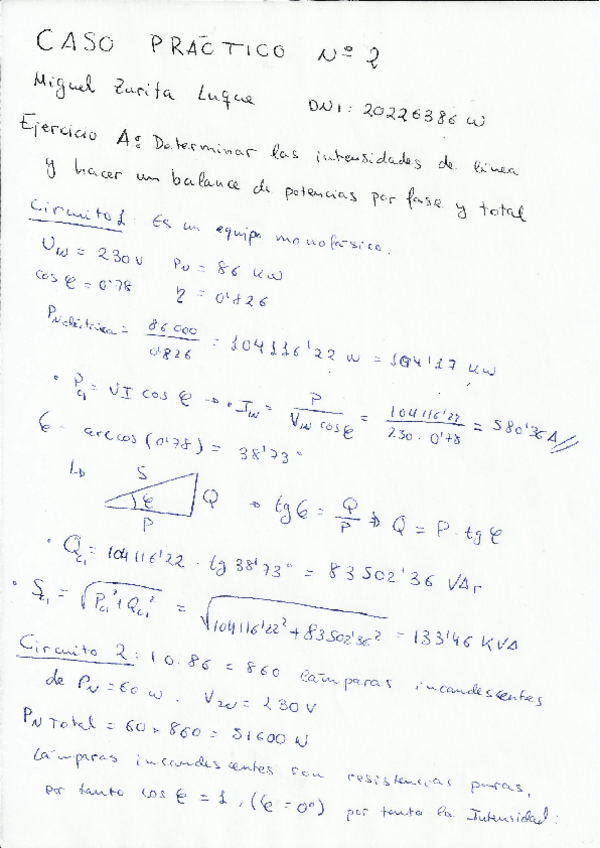 CASO PRÁCTICO Nº 2
Miguel Zurita Luque DNI: 20226386 W
Ejercicio A: Determinar las intensidades de línea
y hacer un balance de potencias por fase y total
Circuito 1: Es un equipo monofásico.
U₁N = 230 V PN = 86 KW
cos φ = 0'78 η = 0'826
PN eléctrica = 86000 / 0'826 = 104116'22 W = 104'17 KW
• Pc1 = VI cos φ → • I₁N = P / V₁N cos φ = 104116'22 / 230 · 0'78 = 580'36 A //
φ = arccos (0'78) = 38'73°
↳ S Q φ P → tg φ = Q/P ⇒ Q = P · tg φ
• Qc1 = 104116'22 · tg 38'73° = 83502'36 VAr
• Sc1 = √(Pc1² + Qc1²) = √(104116'22² + 83502'36²) = 133'46 KVA
Circuito 2: 10 · 86 = 860 lámparas incandescentes
de PN = 60 W. V2N = 230 V
PN Total = 60 × 860 = 51600 W
Lámparas incandescentes son resistencias puras,
por tanto cos φ = 1, (φ = 0°) por tanto la Intensidad: